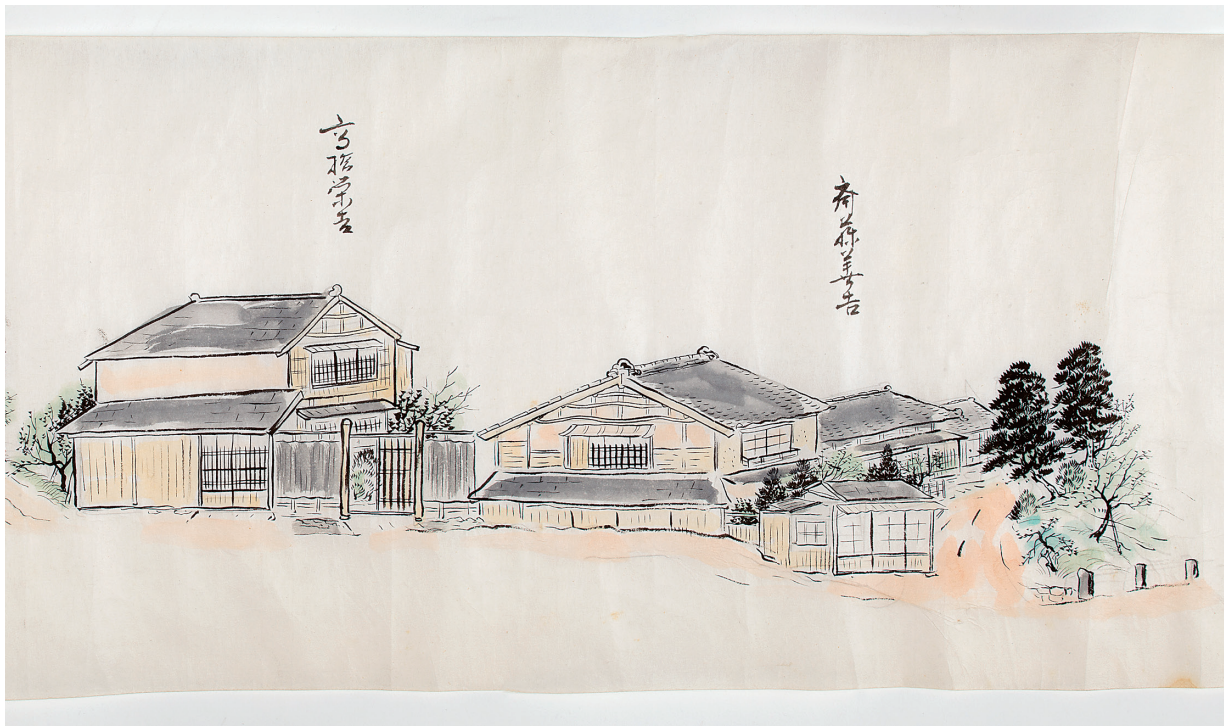 斎藤善吉
高松栄吉